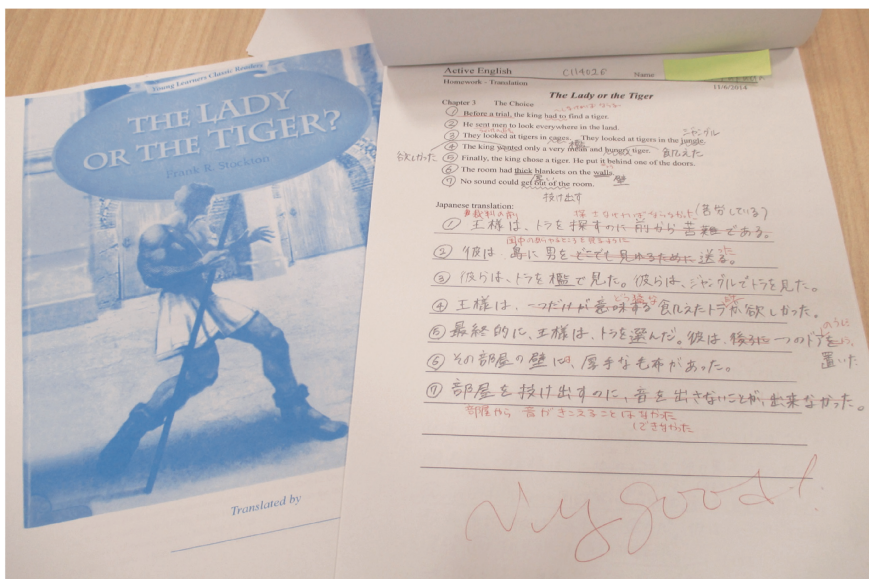 Young Learners Classic Readers
THE LADY
OR THE TIGER?
Frank R. Stockton
Translated by
Active English
C114026
Name
Homework - Translation
11/6/2014
The Lady or the Tiger
Chapter 3 The Choice
① Before a trial, the king had to find a tiger.
② He sent men to look everywhere in the land.
③ They looked at tigers in cages. They looked at tigers in the jungle.
ジャングル
檻
④ The king wanted only a very mean and hungry tiger.
欲しかった
飢えた
⑤ Finally, the king chose a tiger. He put it behind one of the doors.
⑥ The room had thick blankets on the walls.
厚い
壁
⑦ No sound could get out of the room.
抜け出す
Japanese translation:
裁判の前
探さなければならなかった
(苦労している)
① 王様は、トラを探すのに前から苦難である。
② 彼は島に男をどこでも見ゆるために送る。
③ 彼らは、トラを檻で見た。彼らは、ジャングルでトラを見た。
④ 王様は、一つだけが意味する飢えたトラが欲しかった。
⑤ 最終的に、王様は、トラを選んだ。彼は、後ろに一つのドアを
のうしろに
置いた
⑥ その部屋の壁には、厚手な毛布があった。
⑦ 部屋を抜け出すのに、音を出さないことが、出来なかった。
部屋から 音がきこえることはなかった
(できなかった
Very good!